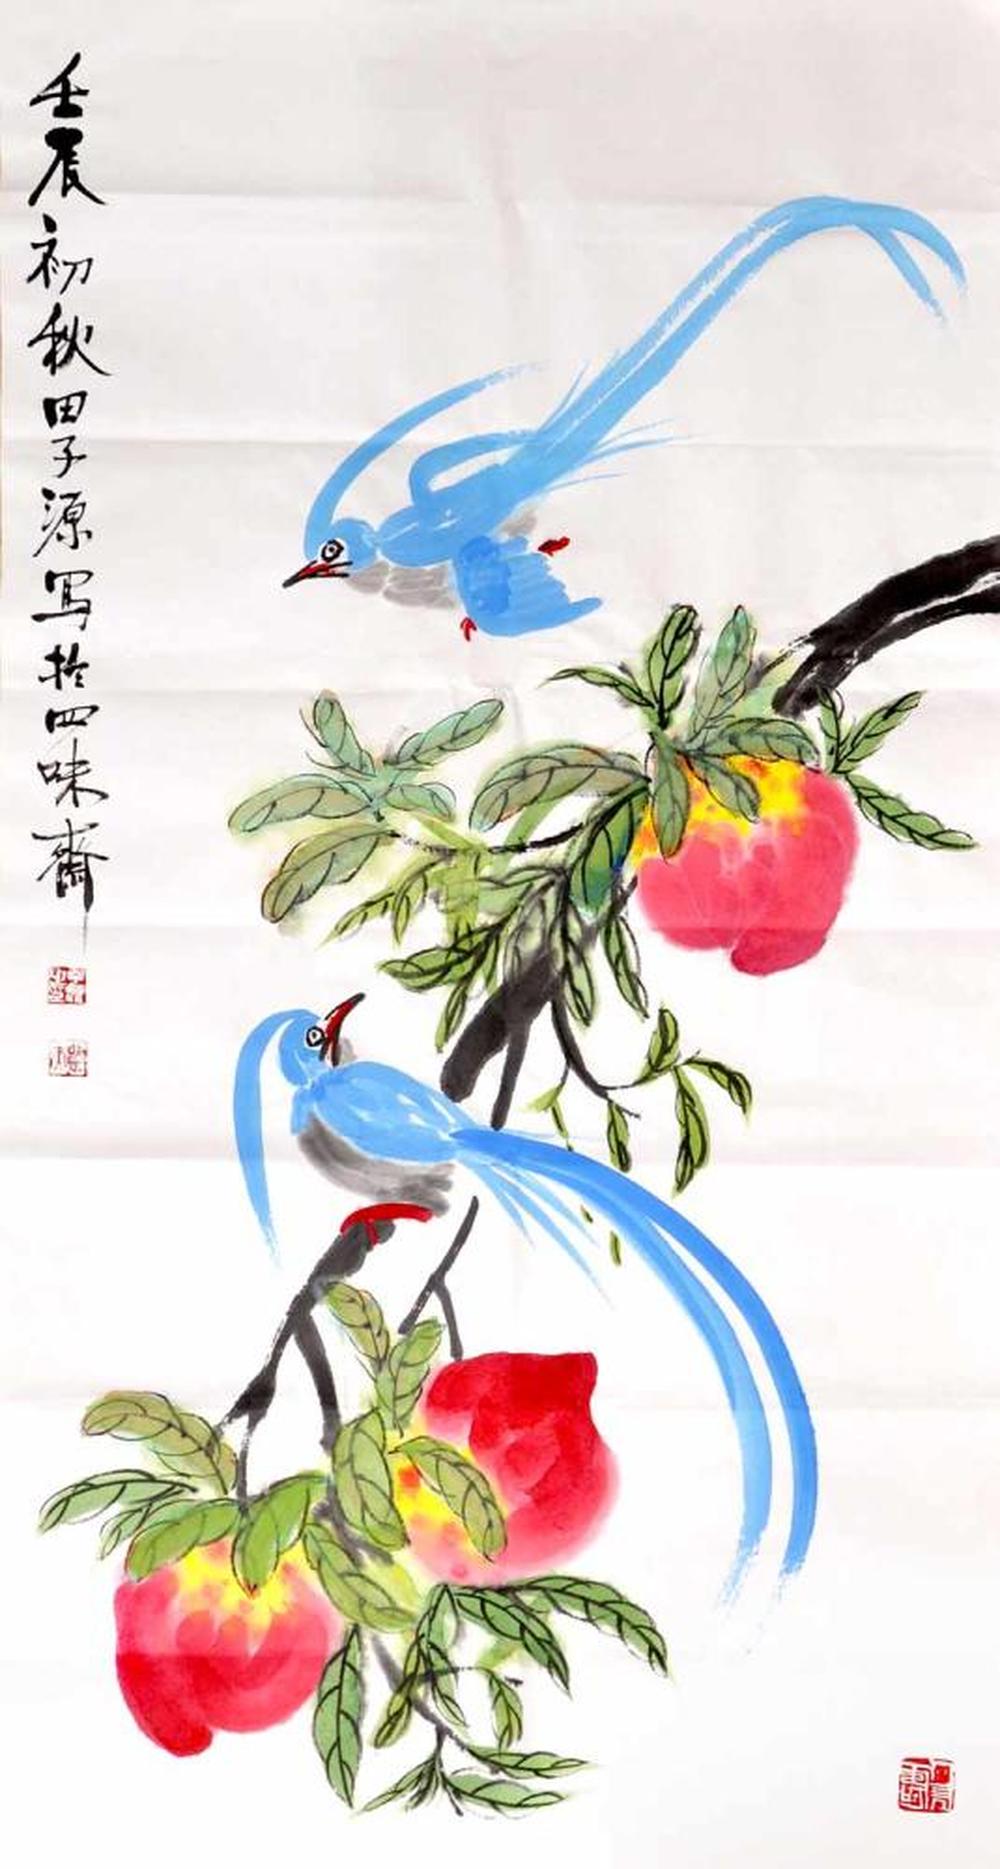 壬辰初秋田子源写於四味斋